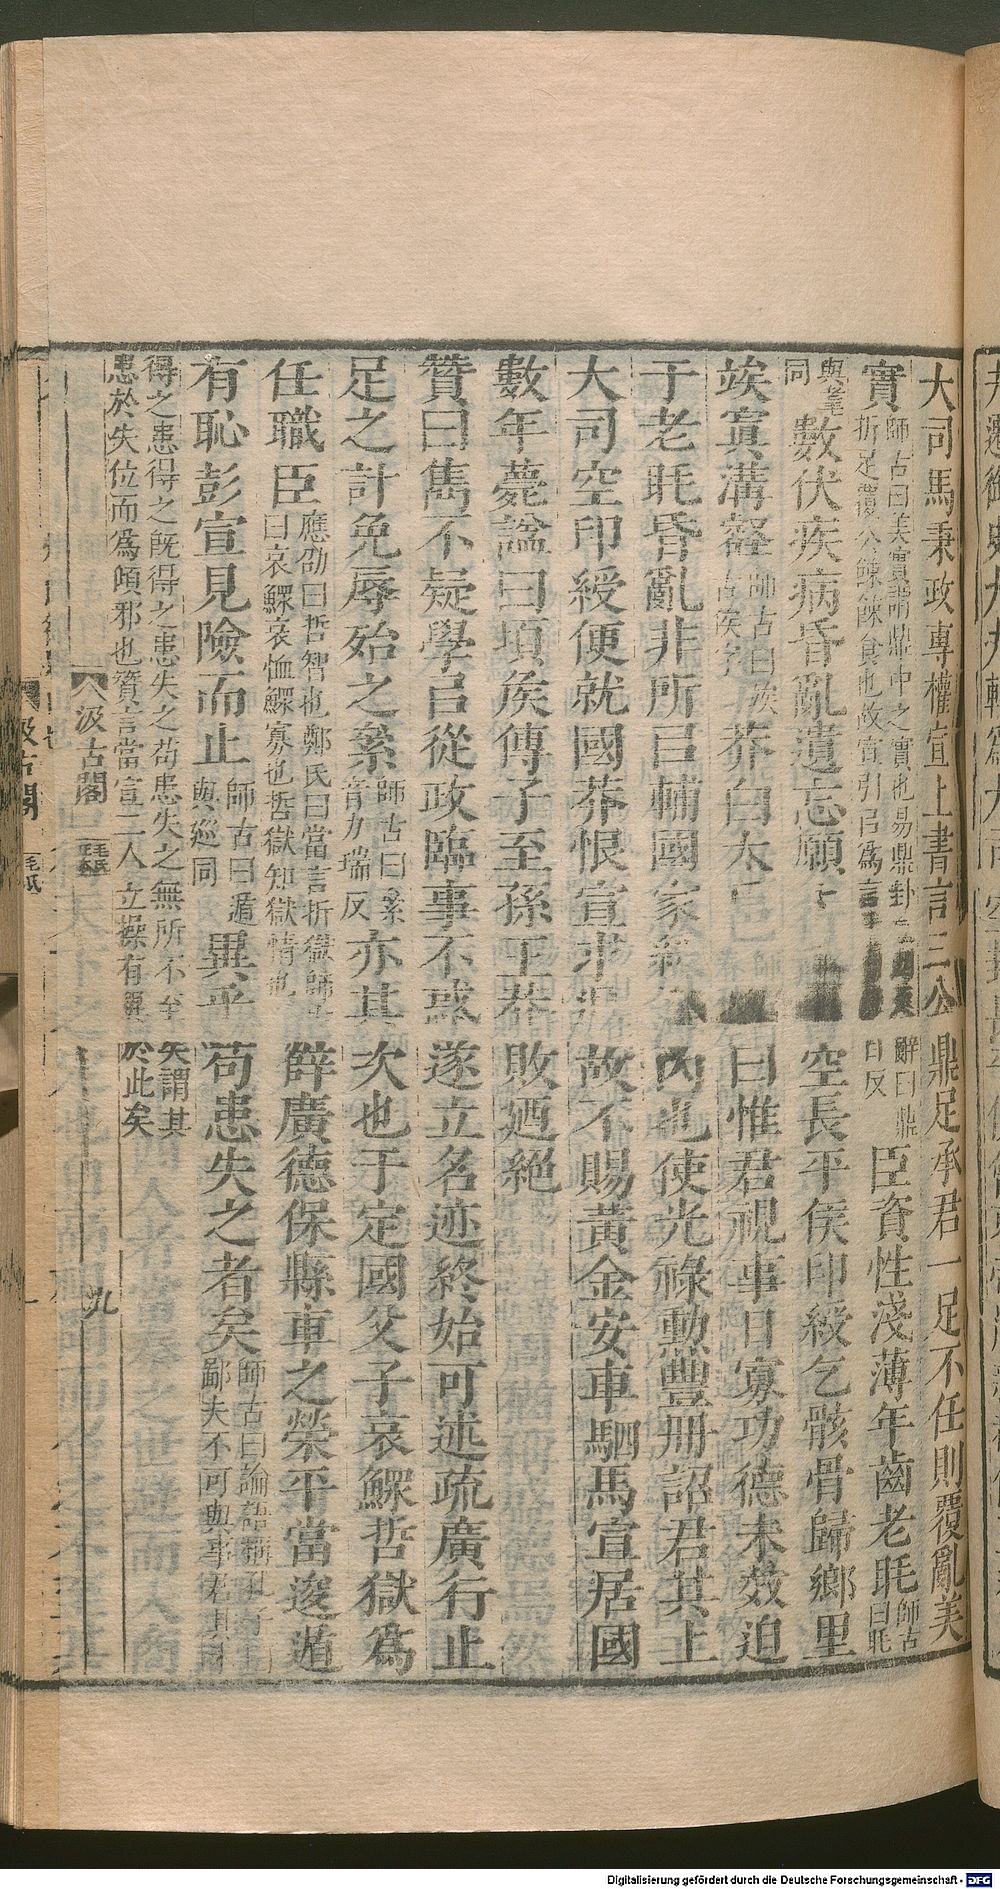 大司馬秉政專權宣上書言三公鼎足承君一足不任則覆亂美
實師古曰美實謂鼎中之實也易鼎卦辭曰鼎折足覆公餗餗食也故宣引㠯為言臣資性淺薄年齒老眊師古曰眊
與耄同數伏疾病昏亂遺忘願空長平侯印綬乞骸骨歸鄉里
竢寘溝壑師古曰竢古俟字莽白太曰惟君視事日寡功德未效迫
于老眊昏亂非所㠯輔國家綏內也使光祿勳豐冊詔君其上
大司空印綬便就國莽恨宣求故不賜黃金安車駟馬宣居國
數年薨諡曰頃侯傳子至孫王莽敗迺絕
贊曰雋不疑學㠯從政臨事不惑遂立名迹終始可述疏廣行止
足之計免辱殆之絫師古曰絫音力瑞反亦其次也于定國父子哀鰥哲獄為
任職臣應劭曰哲智也鄭氏曰當言折獄師古曰哀鰥哀恤鰥寡也哲獄知獄情也薛廣德保縣車之榮平當逡遁
有恥彭宣見險而止師古曰遁與巡同異乎苟患失之者矣師古曰論語稱孔子曰鄙夫不可與事君其未
得之患得之既得之患失之苟患失之無所不至矣謂其患於失位而為傾邪也贊言當宣二人立操有異於此矣
汲古閣
毛氏
九
汲古閣
毛氏
Digitalisierung gefördert durch die Deutsche Forschungsgemeinschaft - DFG